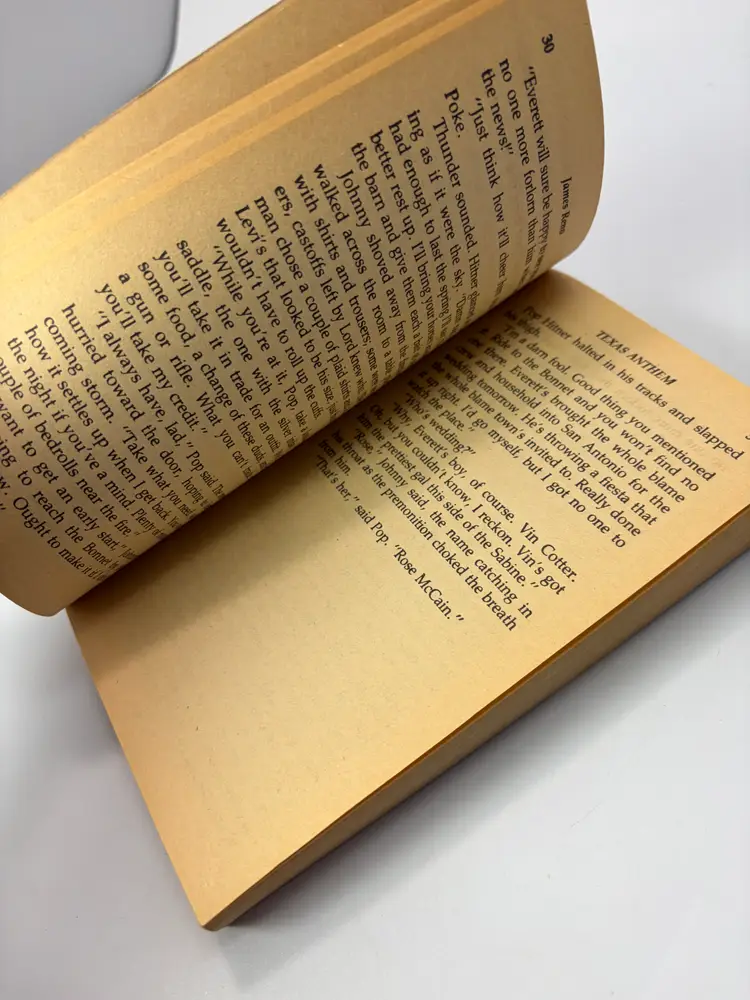 30
James Reno
"Everett will sure be happy to
no one more forlorn than him
the news!"
"Just think how it'll cheer
Poke.
Thunder sounded. Hitner
ing as if it were the sky.
had enough to last the spring. I'll
better rest up. I'll bring your horses
the barn and give them each a
Johnny shoved away from the
walked across the room to a
with shirts and trousers, some
ers, castoffs left by Lord knew
man chose a couple of plaid shirts
Levi's that looked to be his size,
wouldn't have to roll up the cuffs.
"While you're at it, Pop, take
saddle, the one with the silver
you'll take it in trade for an outfit
some food, a change of these duds,
a gun or rifle. What you can't
you'll take my credit."
"I always have, lad," Pop said.
hurried toward the door, hoping
coming storm. "Take what you need
how it settles up when I get back.
the night if you've a mind. Plenty
couple of bedrolls near the fire."
want to get an early start,"
to reach the Bonnet
Ought to make it
TEXAS ANTHEM
Pop Hitner halted in his tracks and slapped
his thigh.
a darn fool. Good thing you mentioned
Ride to the Bonnet and you won't find no
there. Everett's brought the whole blame
and household into San Antonio for the
wedding tomorrow. He's throwing a fiesta that
the whole blame town's invited to. Really done
it up right. I'd go myself, but I got no one to
watch the place."
"Who's wedding?"
"Why, Everett's boy, of course. Vin Cotter.
Oh, but you couldn't know, I reckon. Vin's got
him the prettiest gal this side of the Sabine."
"Rose," Johnny said, the name catching in
his throat as the premonition choked the breath
from him.
"That's her," said Pop. "Rose McCain."